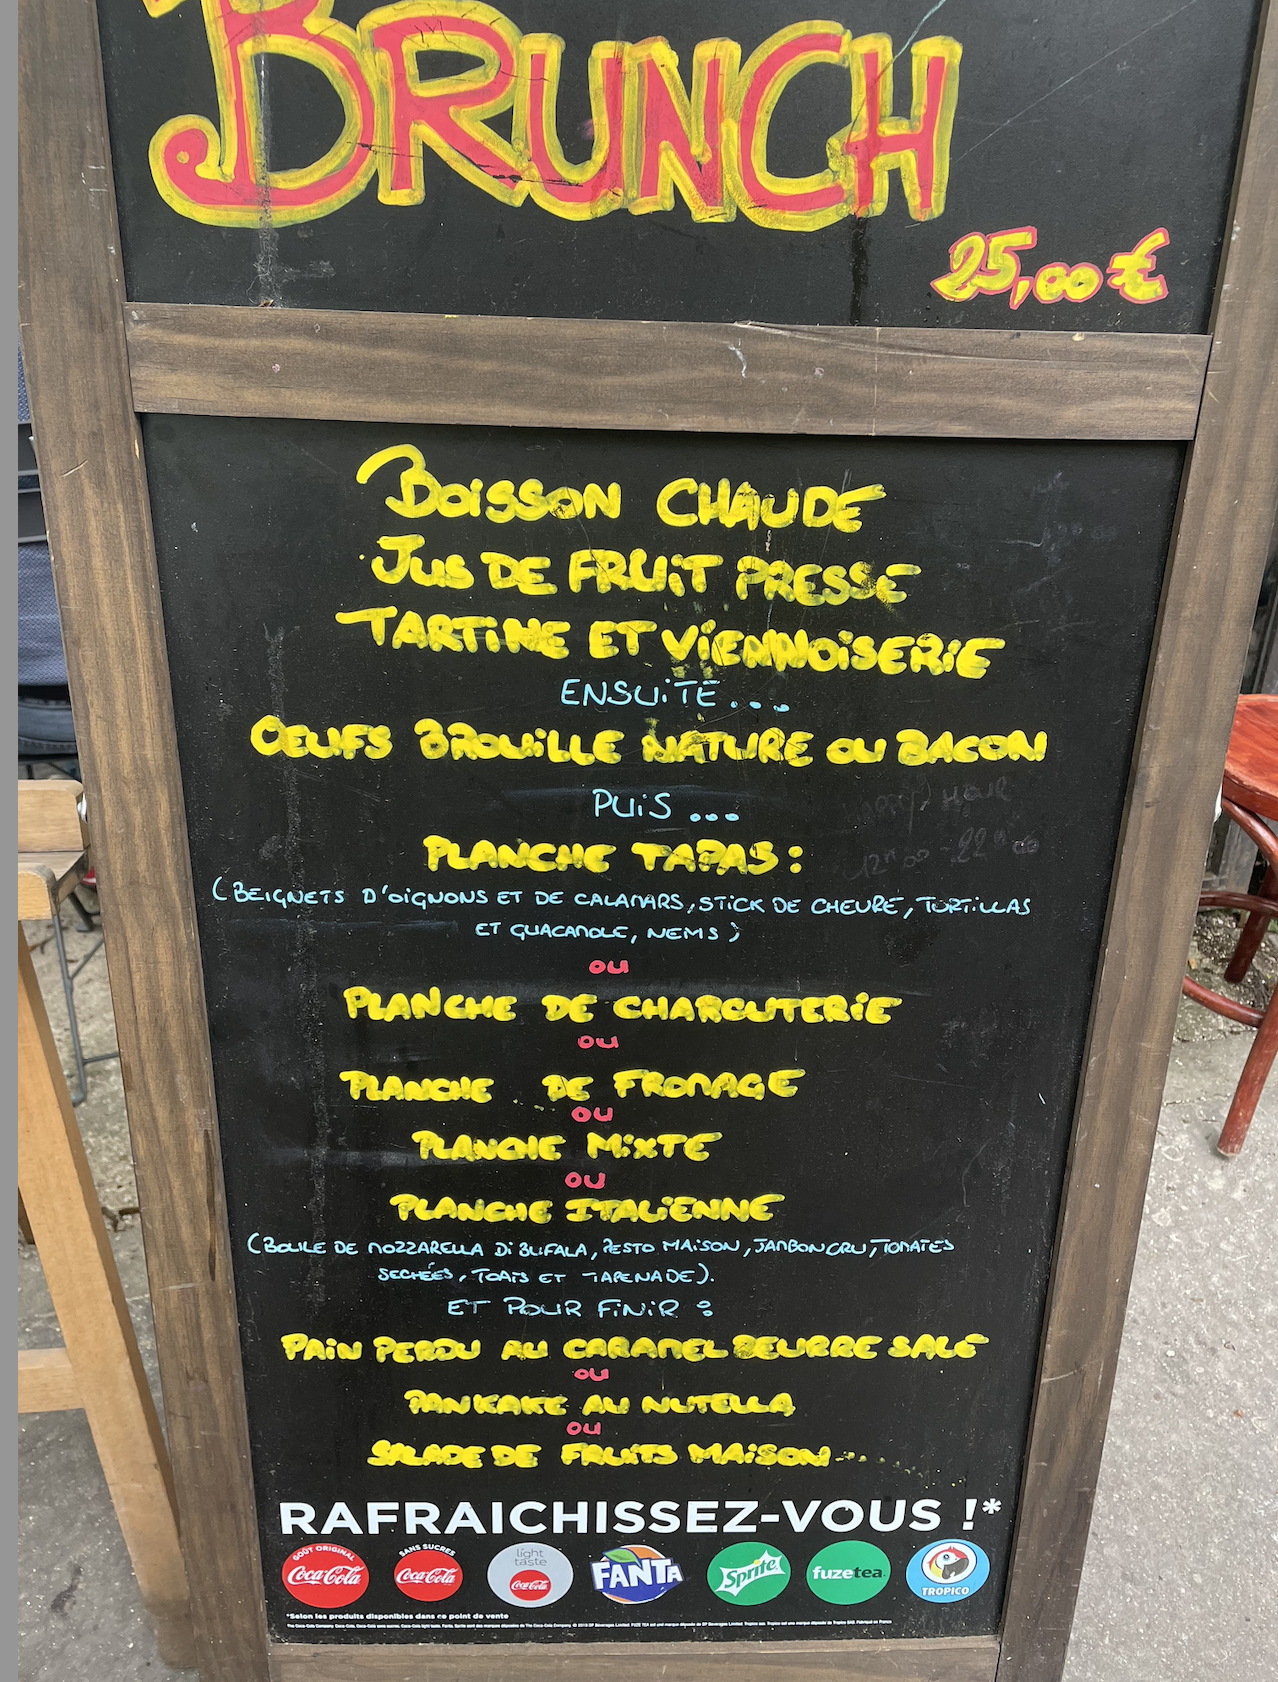 BRUNCH
25,00 €
BOISSON CHAUDE
JUS DE FRUIT PRESSE
TARTINE ET VIENNOISERIE
ENSUITE...
OEUFS BROUILLE NATURE OU BACON
PUIS ...
PLANCHE TAPAS :
(BEIGNETS D'OIGNONS ET DE CALAMARS, STICK DE CHEVRE, TORTILLAS
ET GUACAMOLE, NEMS)
OU
PLANCHE DE CHARCUTERIE
OU
PLANCHE DE FROMAGE
OU
PLANCHE MIXTE
OU
PLANCHE ITALIENNE
(BOULE DE MOZZARELLA DI BUFALA, PESTO MAISON, JAMBON CRU, TOMATES
SECHÉES, TOATS ET TAPENADE).
ET POUR FINIR :
PAIN PERDU AU CARAMEL BEURRE SALE
OU
PANKAKE AU NUTELLA
OU
SALADE DE FRUITS MAISON...
RAFRAICHISSEZ-VOUS !*
GOÛT ORIGINAL Coca-Cola
SANS SUCRES Coca-Cola
light taste Coca-Cola
FANTA
Sprite
fuzetea
TROPICO
*Selon les produits disponibles dans ce point de vente